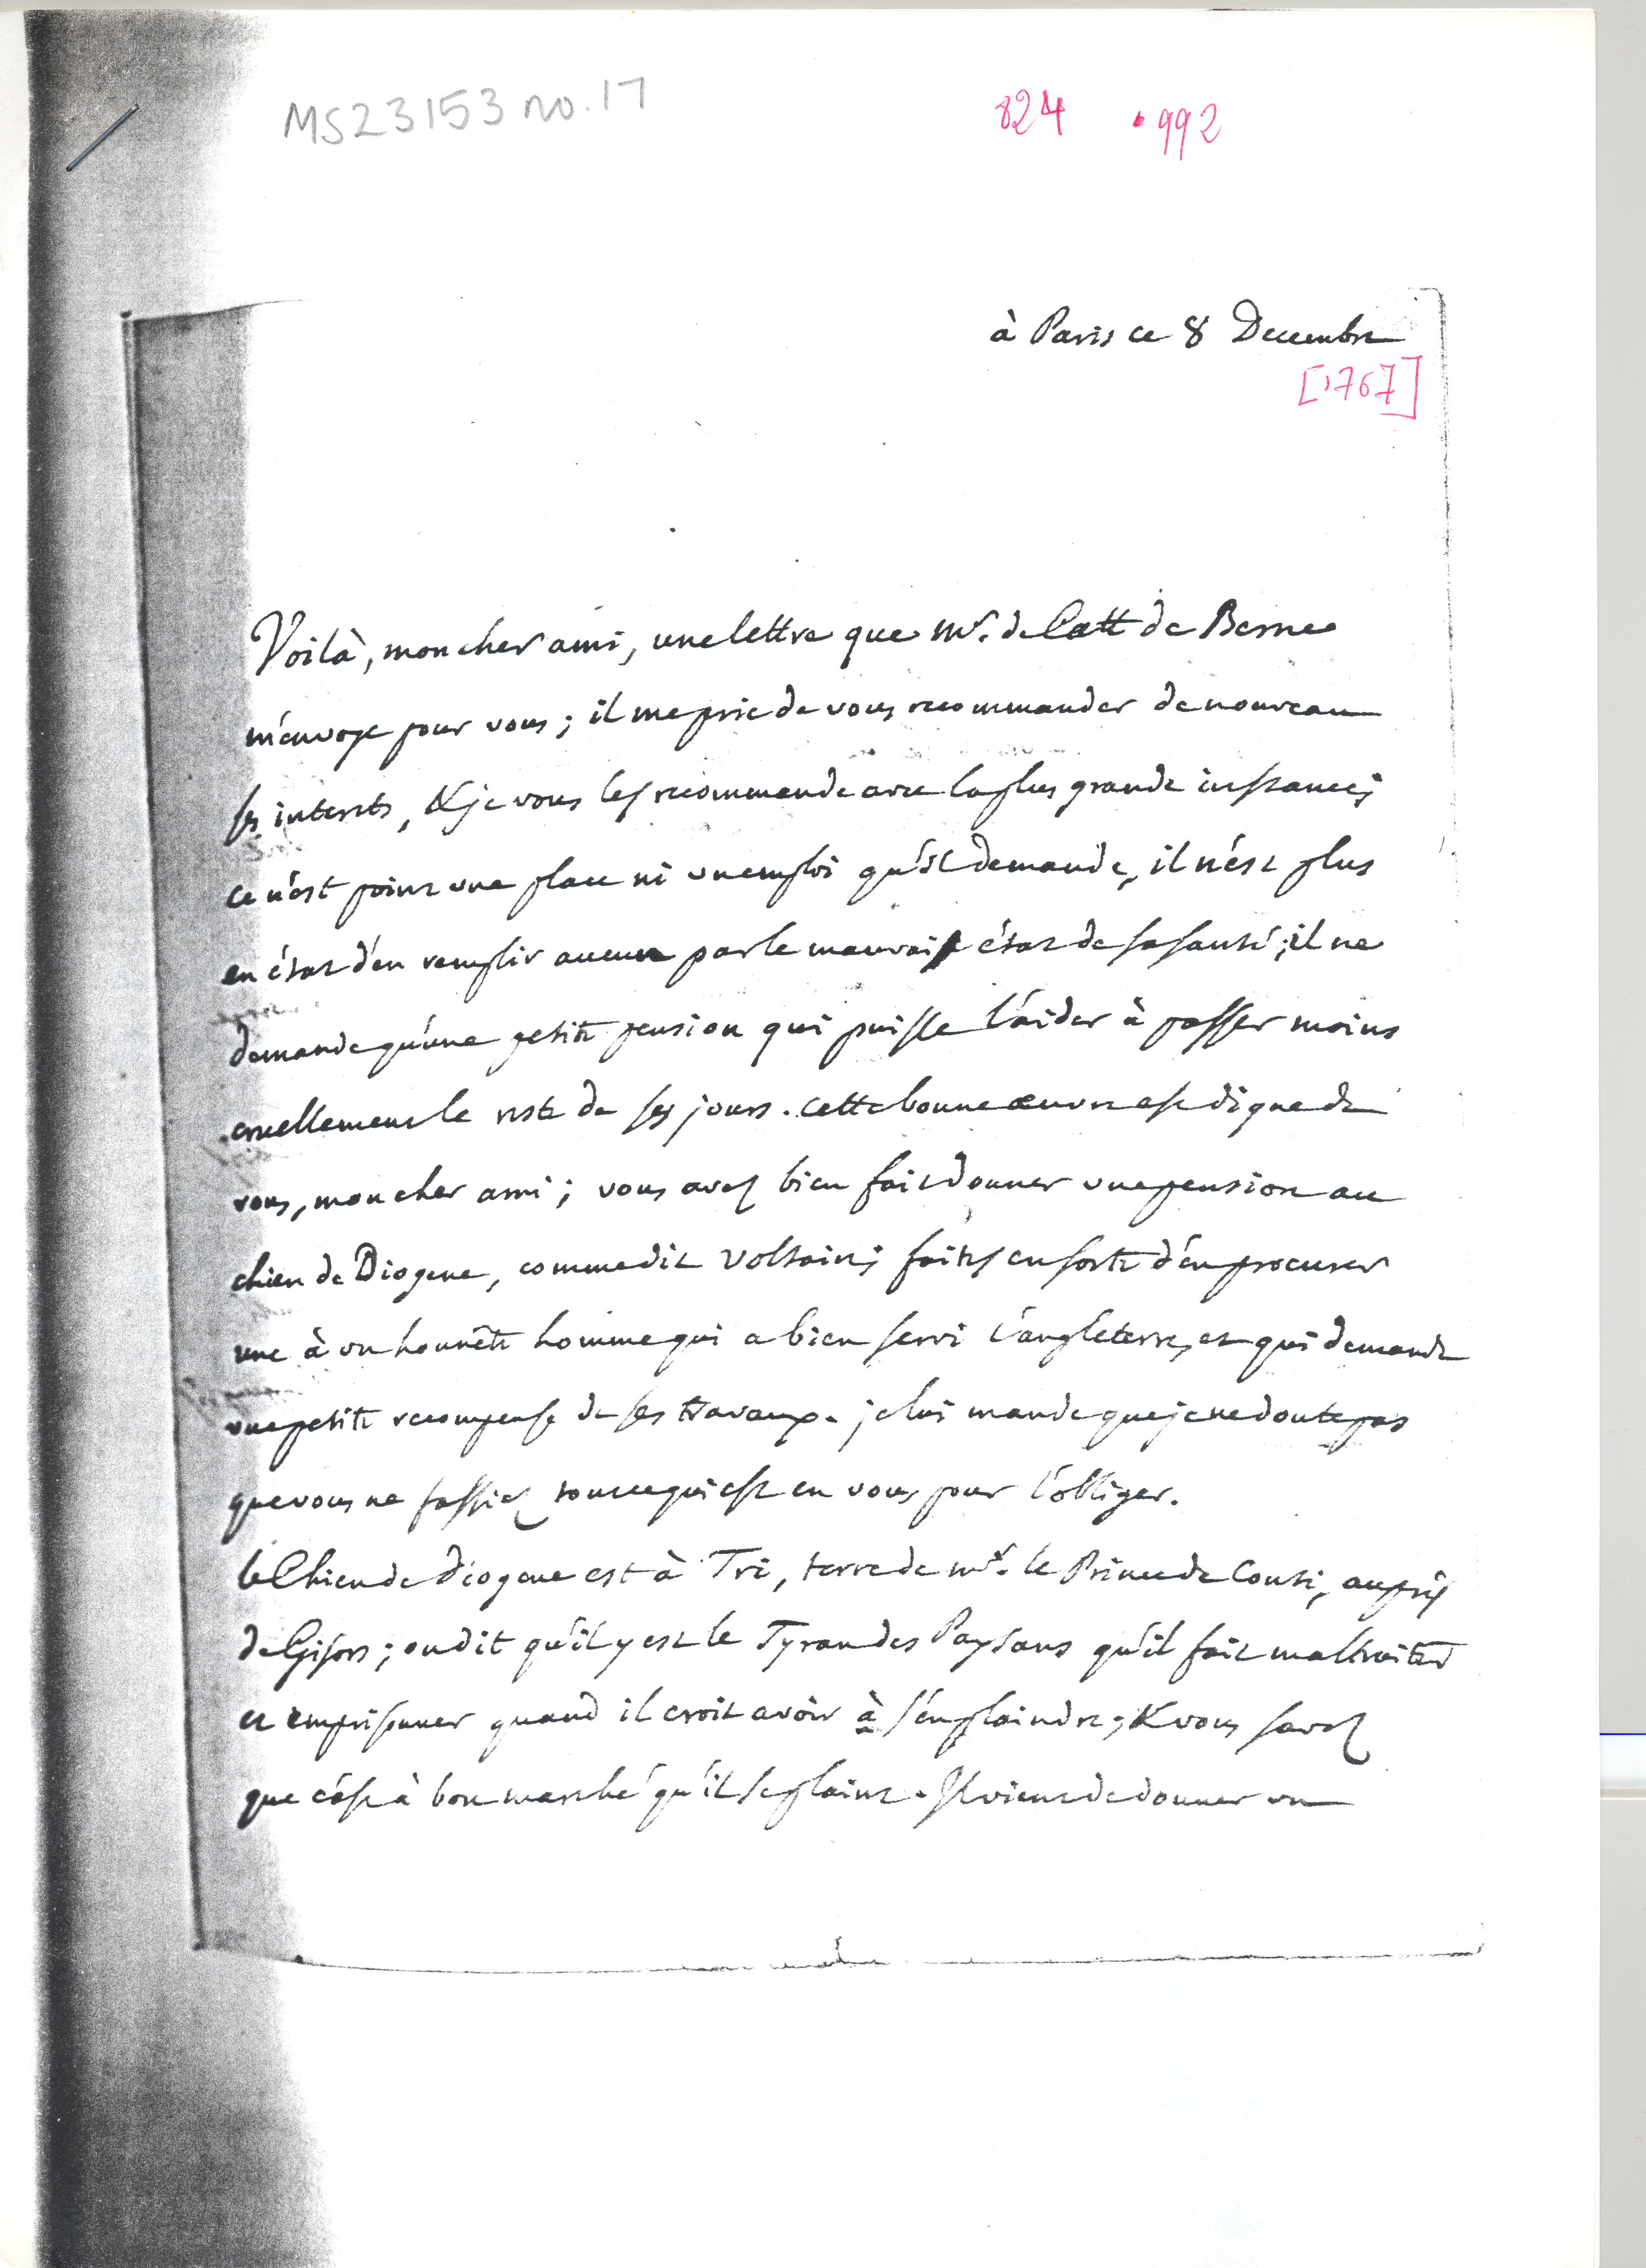 MS23153 no. 17
824 .992
à Paris ce 8 Decembre
[1767]
Voilà, mon cher ami, une lettre que Mr. de Catt de Berne
m'envoye pour vous; il me prie de vous recommander de nouveau
ses interets, & je vous les recommande avec la plus grande instance;
ce n'est point une place ni un emploi qu'il demande, il n'est plus
en état d'en remplir aucun par le mauvais état de sa santé; il ne
demande qu'une petite pension qui puisse l'aider à passer moins
cruellement le reste de ses jours. cette bonne œuvre est digne de
vous, mon cher ami; vous avez bien fait donner une pension au
chien de Diogene, comme dit Voltaire; faites en sorte d'en procurer
une à un honnête homme qui a bien servi l'angleterre, et qui demande
une petite recompense de ses travaux. je lui mande que je ne doute pas
que vous ne fassiez tout ce qui est en vous pour l'obliger.
le Chien de Diogene est à Trie, terre de mr. le Prince de Conti, auprès
de Gisors; on dit qu'il y est le Tyran des Paysans qu'il fait maltraiter
et emprisonner quand il croit avoir à s'en plaindre; & vous savez
que c'est à bon marché qu'il se plaint. Il vient de donner un